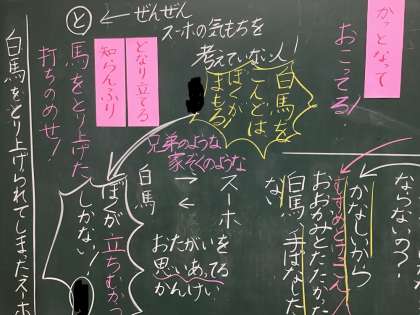 かっとなって
おこってる！
ならないの？
かなしいから
むすめとけっこん
おおかみとたたかった
白馬 手ばなした
ない
白馬を
こんどは
ぼくが
まもる
兄弟のような
家ぞくのような
スーホ
白馬
おたがいを
思いあってる
かんけい
と
ぜんぜん
スーホの気もちを
考えていない人！
どなり立てる
知らんぷり
馬をとり上げた
打ちのめせ！
ぼくが立ちむかう
しかない！
白馬をとり上げられてしまったスーホ